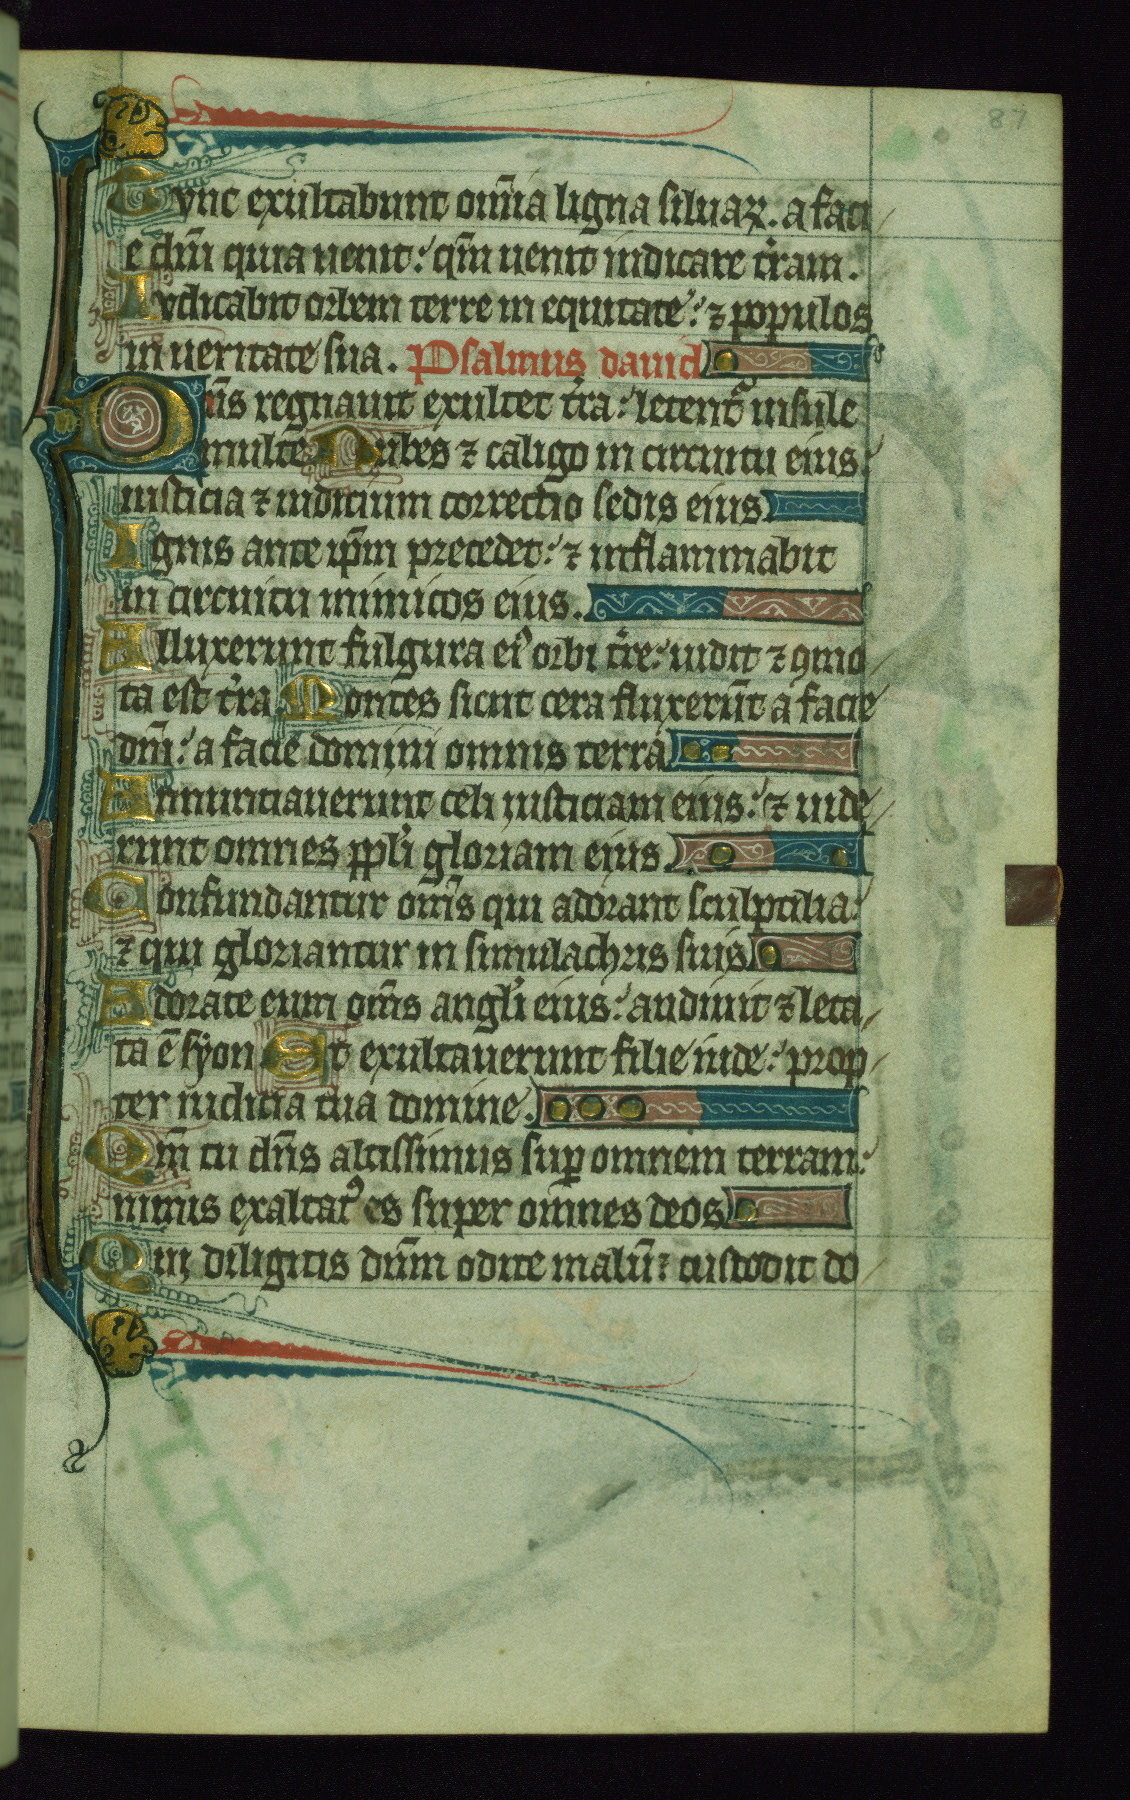 87
Tunc exultabunt om̄ia ligna siluaꝝ. a faci
e dn̄i quia uenit: qm̄ uenit iudicare t̓ram.
Iudicabit orbem terre in equitate: ⁊ populos
in ueritate sua. Psalmus dauid
Dn̄s regnauit exultet t̓ra: letentᷣ insule
multe Nubes ⁊ caligo in circuitu eius:
iusticia ⁊ iudicium correctio sedis eius.
Ignis ante ip̄m precedet: ⁊ inflammabit
in circuitu inimicos eius.
Alluxerunt fulgura ei᷒ orbi t̓re: uidit ⁊ ꝯmo
ta est t̓ra Montes sicut cera fluxerūt a facie
dn̄i: a facie domini omnis terra
Annuntiauerunt celi iusticiam eius: ⁊ uide
runt omnes ppl̓i gloriam eius.
Confundantur om̄s qui adorant sculptilia:
⁊ qui gloriantur in simulachris suis
Adorate eum om̄s angl̓i eius: audiuit ⁊ leta
ta ē syon Et exultauerunt filie iude: prop
ter iudicia tua domine.
Qm̄ tu dn̄s altissimus suꝑ omnem terram:
nimis exaltatꝰ es super omnes deos
Qui diligitis dn̄m odite malū: custodit do